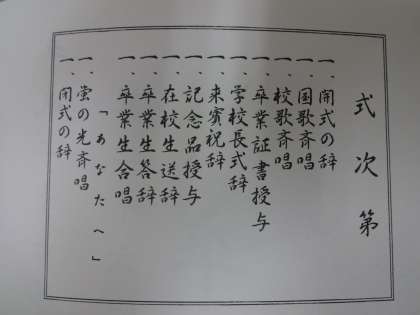 式次第
一、開式の辞
一、国歌斉唱
一、校歌斉唱
一、卒業証書授与
一、学校長式辞
一、来賓祝辞
一、記念品授与
一、在校生送辞
一、卒業生答辞
一、卒業生合唱
「あなたへ」
一、蛍の光斉唱
一、閉式の辞